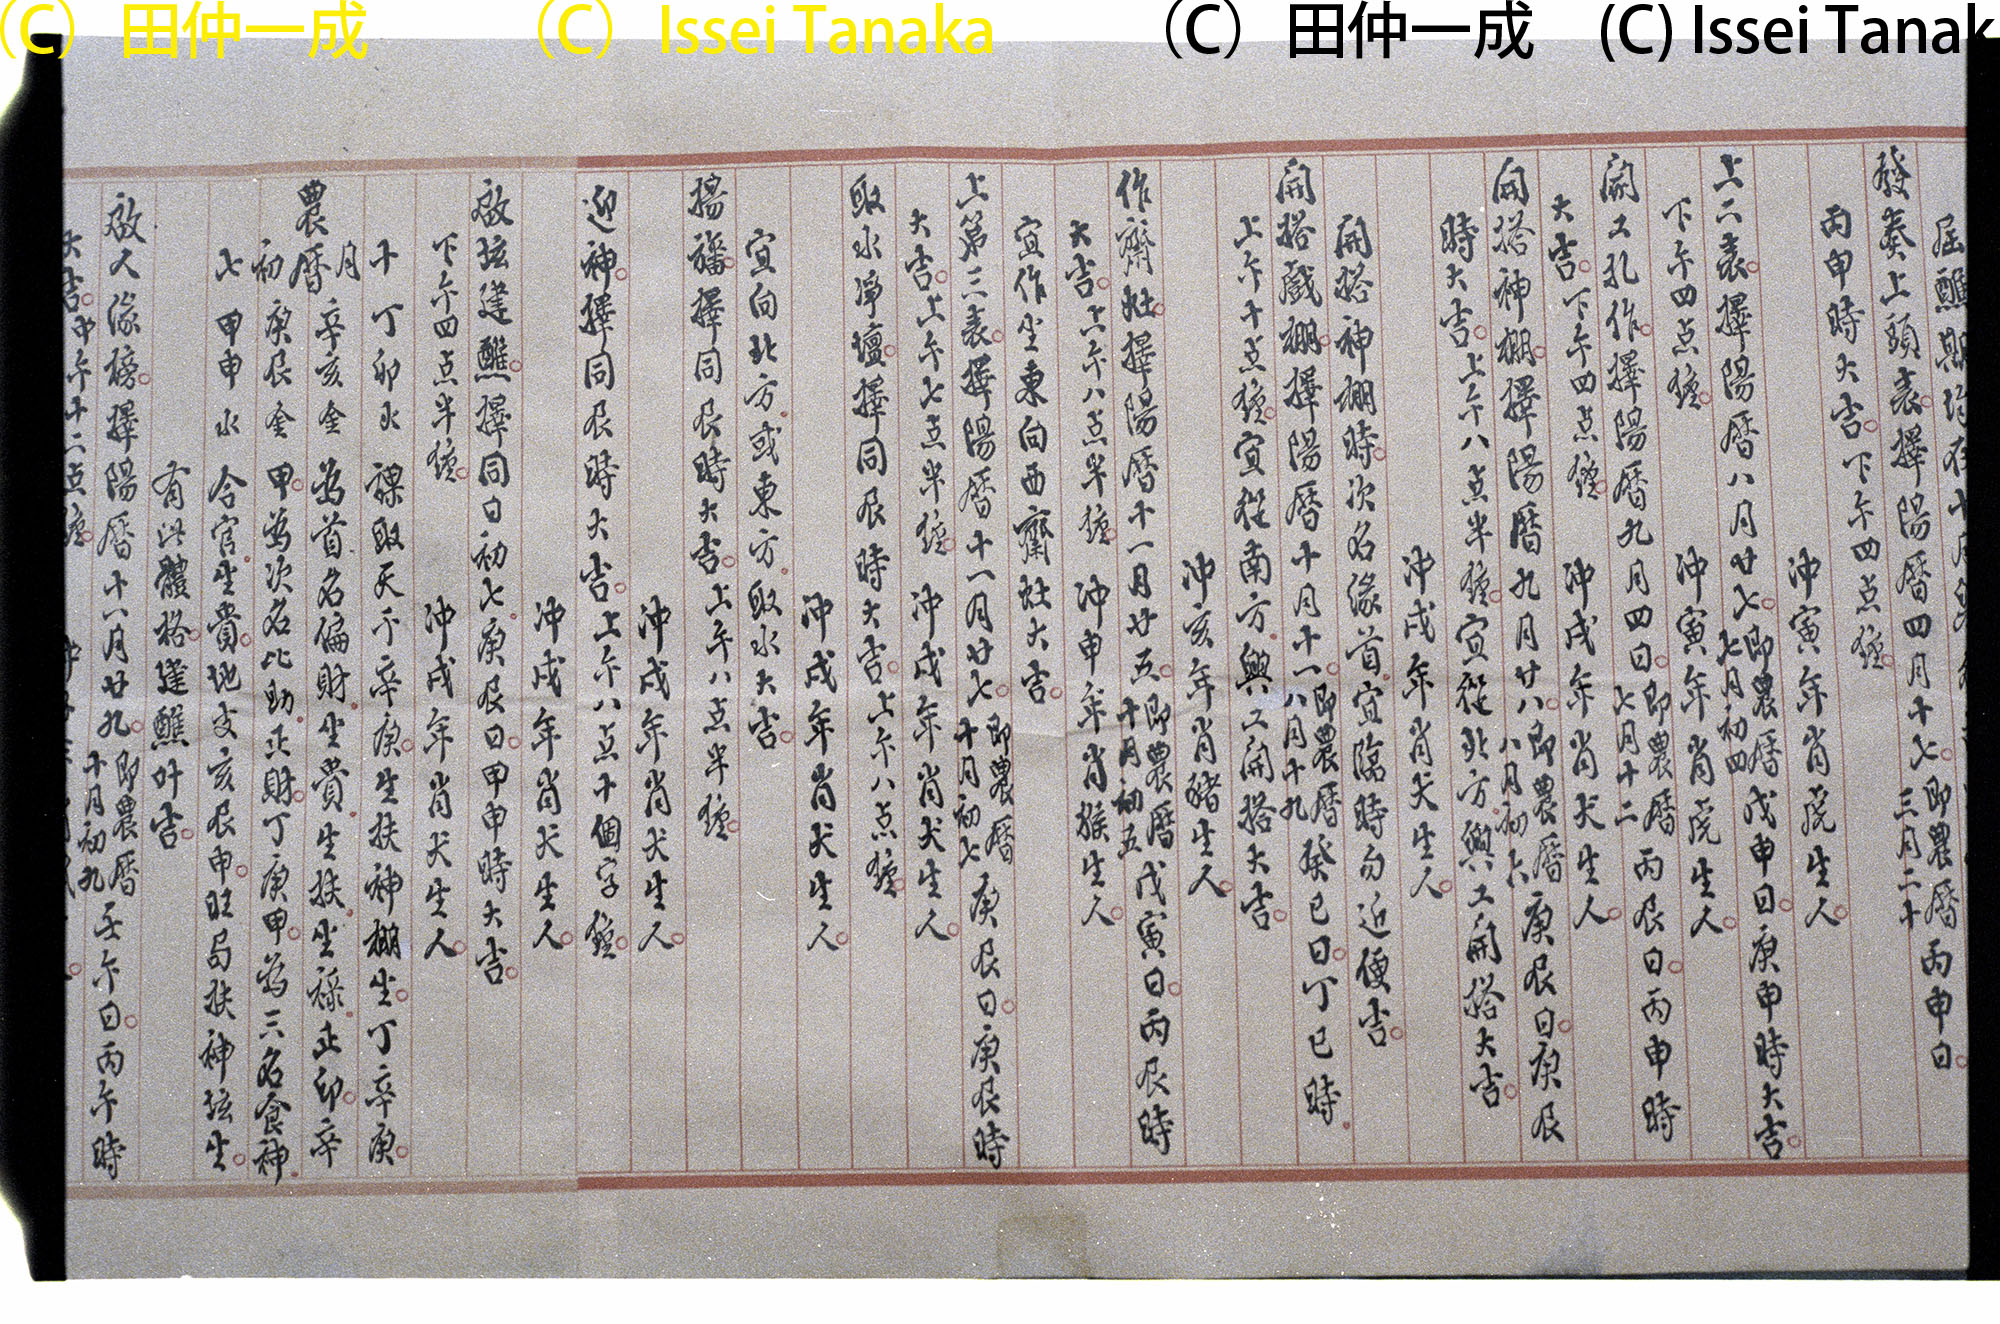 (C) 田仲一成 (C) Issei Tanaka (C) 田仲一成 (C) Issei Tanak
屆醮期
發奏上頭表。擇陽曆四月十七。即農曆三月二十丙申日。
丙申時大吉。下午四点鐘。
冲寅年肖虎生人。
上二表。擇陽曆八月廿七。即農曆七月初四戊申日。庚申時大吉。
下午四点鐘。
冲寅年肖虎生人。
開工扎作。擇陽曆九月四日。即農曆七月十二丙辰日。丙申時
大吉。下午四点鐘。
冲戌年肖犬生人。
開搭神棚。擇陽曆九月廿八。即農曆八月初六庚辰日。庚辰
時大吉。上午八点半鐘。宜從北方。興工開搭大吉。
冲戌年肖犬生人。
開搭神棚時。次名緣首。宜臨時勿近便吉。
開搭戲棚。擇陽曆十月十一。即農曆八月十九癸巳日。丁巳時。
上午十点鐘。宜從南方。興工開搭大吉。
冲亥年肖豬生人。
作齋灶。擇陽曆十一月廿五。即農曆十月初五戊寅日。丙辰時
大吉。上午八点半鐘。
冲申年肖猴生人。
宜作坐東向西齋灶大吉。
上第三表。擇陽曆十一月廿七。即農曆十月初七庚辰日。庚辰時
大吉。上午七点半鐘。
冲戌年肖犬生人。
取水淨壇。擇同辰時大吉。上午八点鐘。
冲戌年肖犬生人。
宜向北方。或東方。取水大吉。
揚旛。擇同辰時大吉。上午八点半鐘。
冲戌年肖犬生人。
迎神。擇同辰時大吉。上午八点十個字鐘。
冲戌年肖犬生人。
啟坛建醮。擇同日初七。庚辰日。甲申時大吉。
下午四点半鐘。
冲戌年肖犬生人。
十丁卯火課取天干辛庚。生扶神棚坐。丁辛庚。
農曆月辛亥金為首名偏財。坐貴。生扶。坐祿。正印。辛
初庚辰金甲。為次名比助。正財。丁庚甲。為三名食神。
七甲申水合官。坐貴。地支亥辰申。旺局扶神坛坐。
有此體格。建醮叶吉。
啟人緣榜。擇陽曆十一月廿九。即農曆十月初九壬午日。丙午時
大吉。中午十二点鐘。